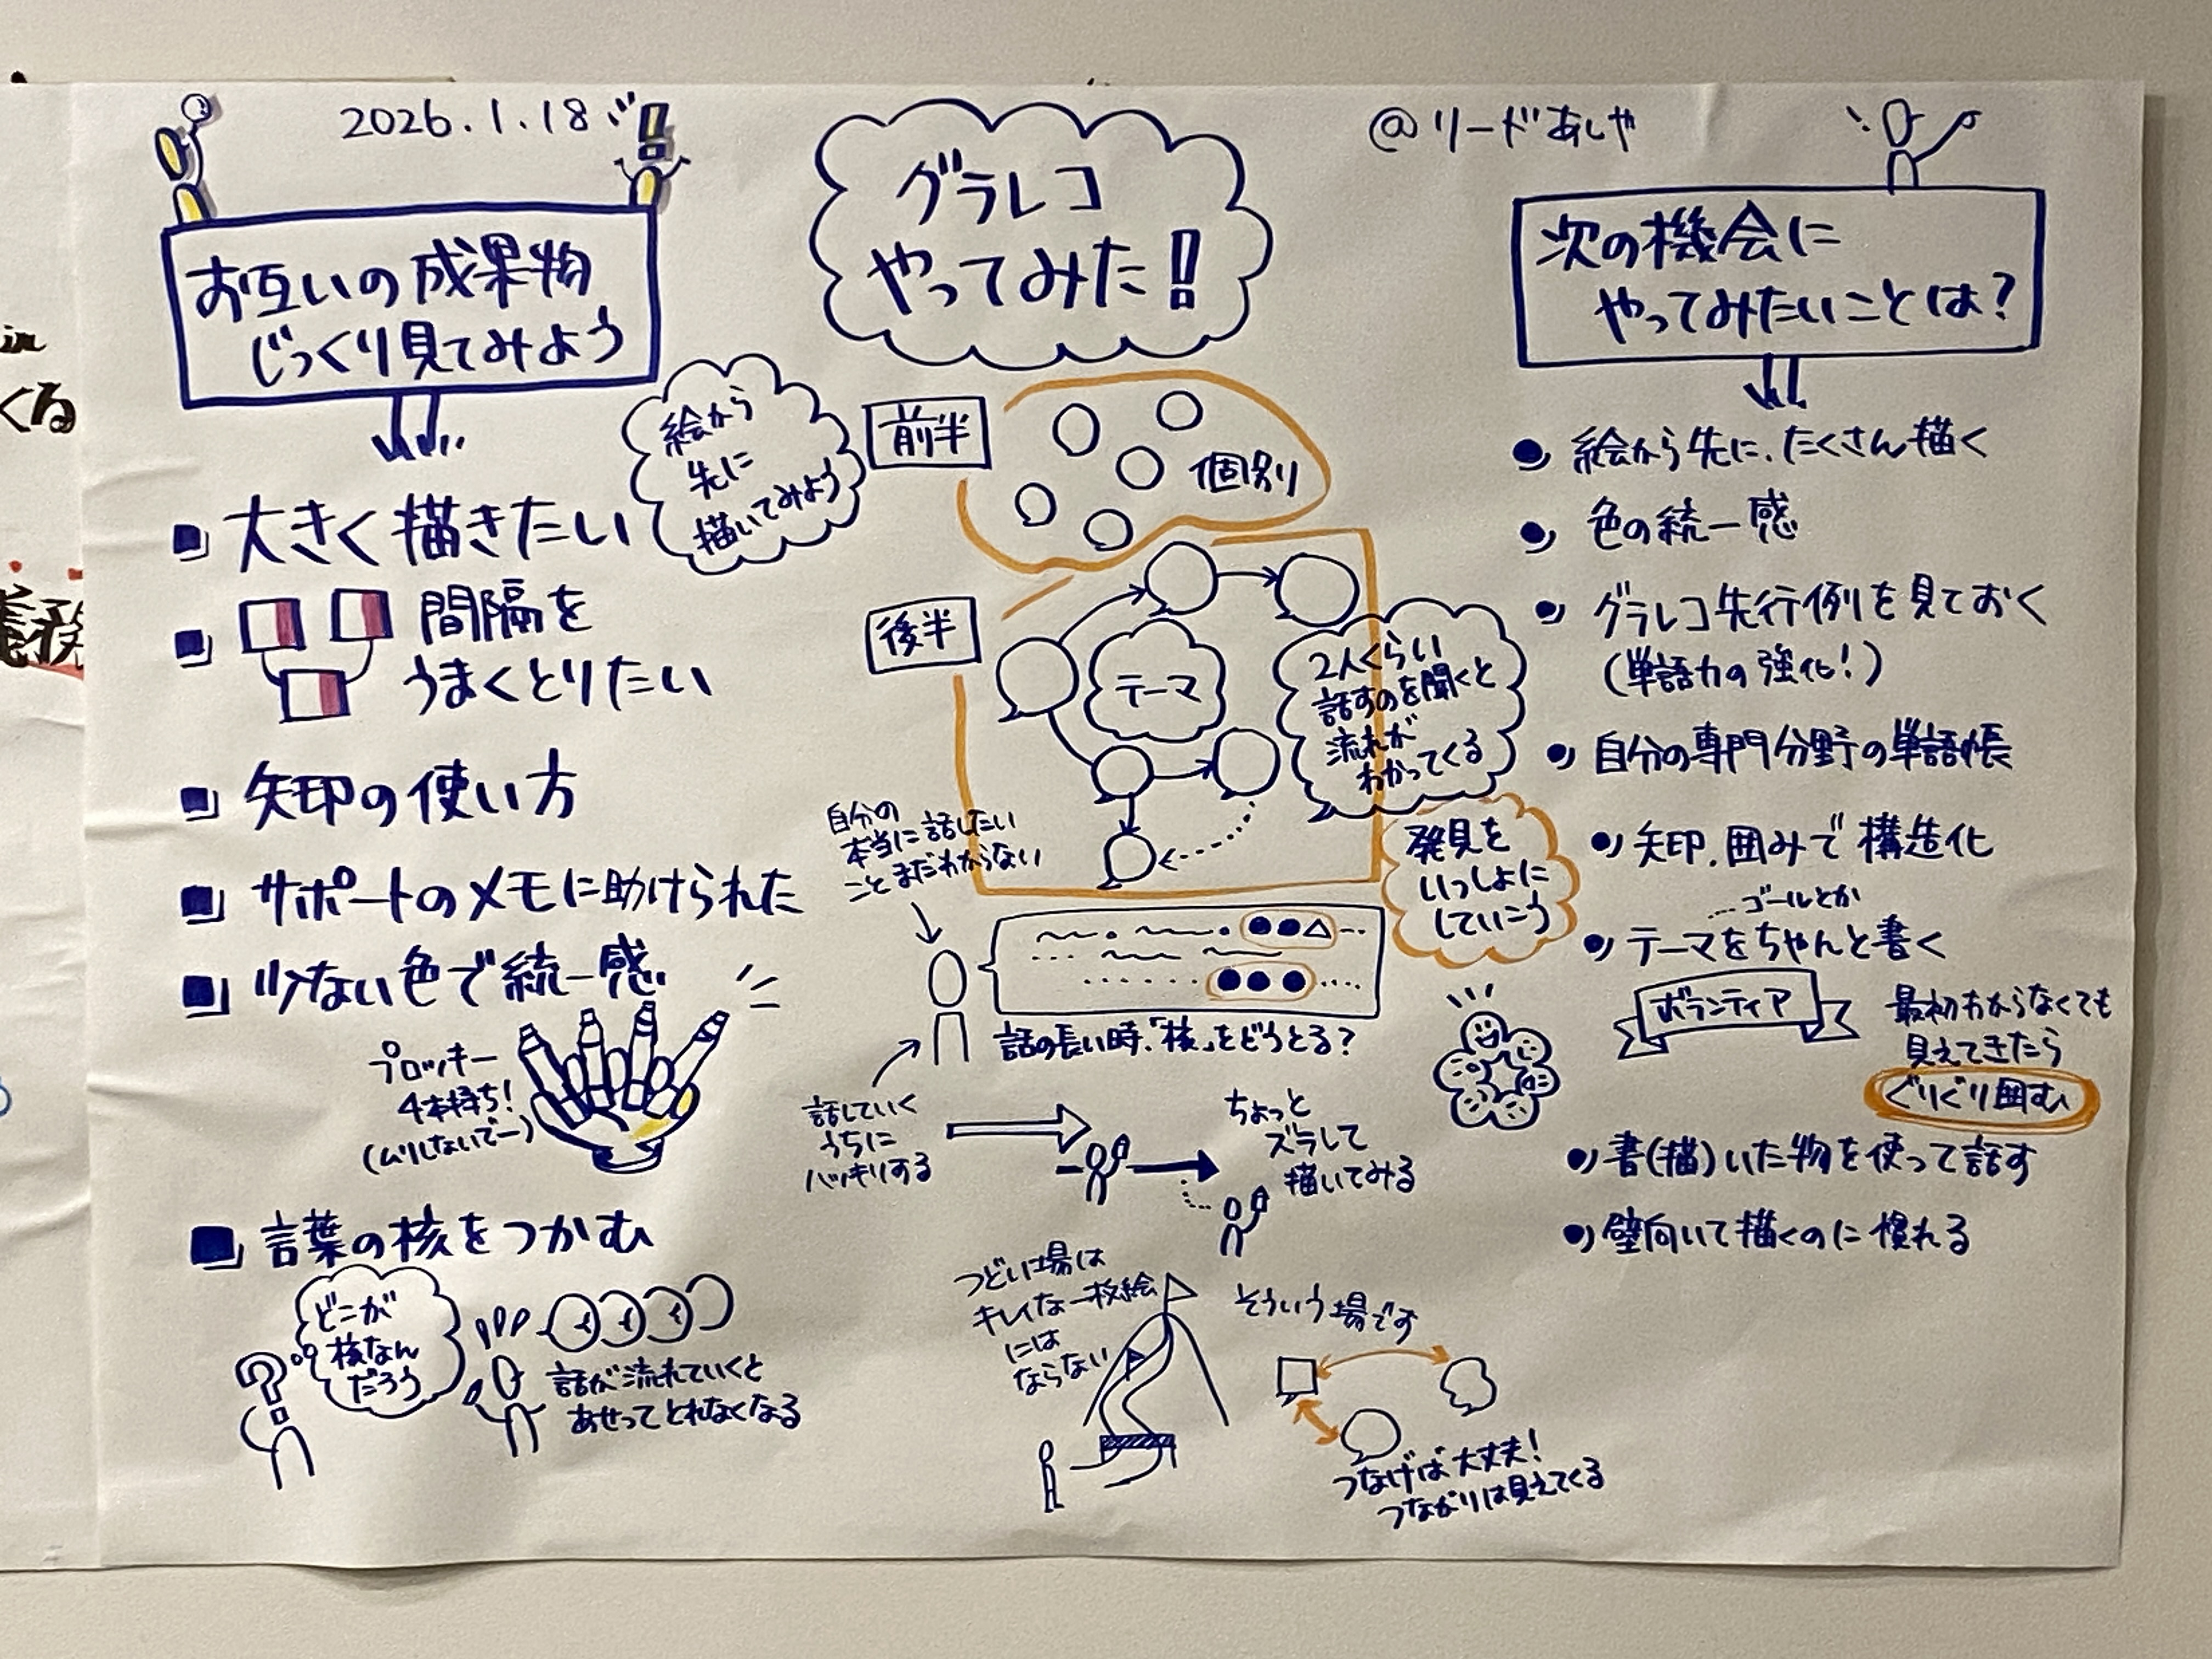 2026.1.18
@リードあしや
グラレコ
やってみた!!
お互いの成果物
じっくり見てみよう
絵から
先に
描いてみよう
■ 大きく描きたい
■ 間隔を
うまくとりたい
■ 矢印の使い方
■ サポートのメモに助けられた
■ 少ない色で統一感
プロッキー
4本持ち!
(ムリしないでー)
■ 言葉の核をつかむ
?
どこが
核なん
だろう
話が流れていくと
あせってとれなくなる
前半
個別
後半
テーマ
2人くらい
話すのを聞くと
流れが
わかってくる
発見を
いっしょに
していこう
自分の
本当に話したい
ことまだわからない
話の長い時、「核」をどうとる?
話していく
うちに
ハッキリする
ちょっと
ズラして
描いてみる
つどい場は
キレイな一枚絵
には
ならない
そういう場です
つなげば大丈夫!
つながりは見えてくる
次の機会に
やってみたいことは?
● 絵から先に、たくさん描く
● 色の統一感
● グラレコ先行例を見ておく
(単語力の強化!)
● 自分の専門分野の単語帳
● 矢印、囲みで構造化
…ゴールとか
● テーマをちゃんと書く
ボランティア
最初わからなくても
見えてきたら
ぐりぐり囲む
● 書(描)いた物を使って話す
● 壁向いて描くのに慣れる
くる